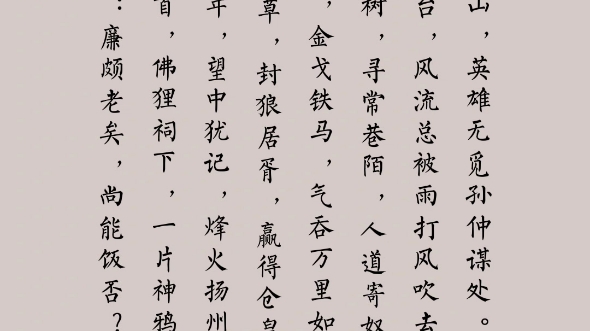 山，英雄无觅孙仲谋处。
台，风流总被雨打风吹去
树，寻常巷陌，人道寄奴
，金戈铁马，气吞万里如
草，封狼居胥，赢得仓皇
年，望中犹记，烽火扬州
首，佛狸祠下，一片神鸦
：廉颇老矣，尚能饭否？